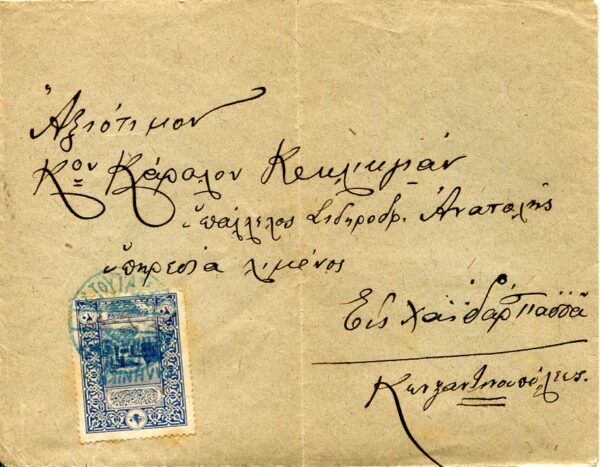 Ἀξιότιμον
Κον Κάρολον Κεκλικιάν
ὑπάλλελος Σιδηροδρ. Ἀνατολῆς
ὑπηρεσία λιμένος
Εἰς Χαϊδάρ Πασσᾶ
Κωνσαντινουπόλεως.